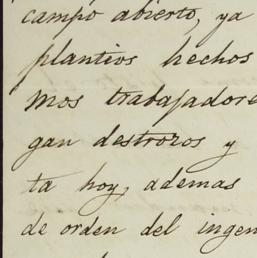 campo abierto, ya
plantios hechos
mos trabajadore
gan destrozos y
ta hoy, ademas
de orden del ingen